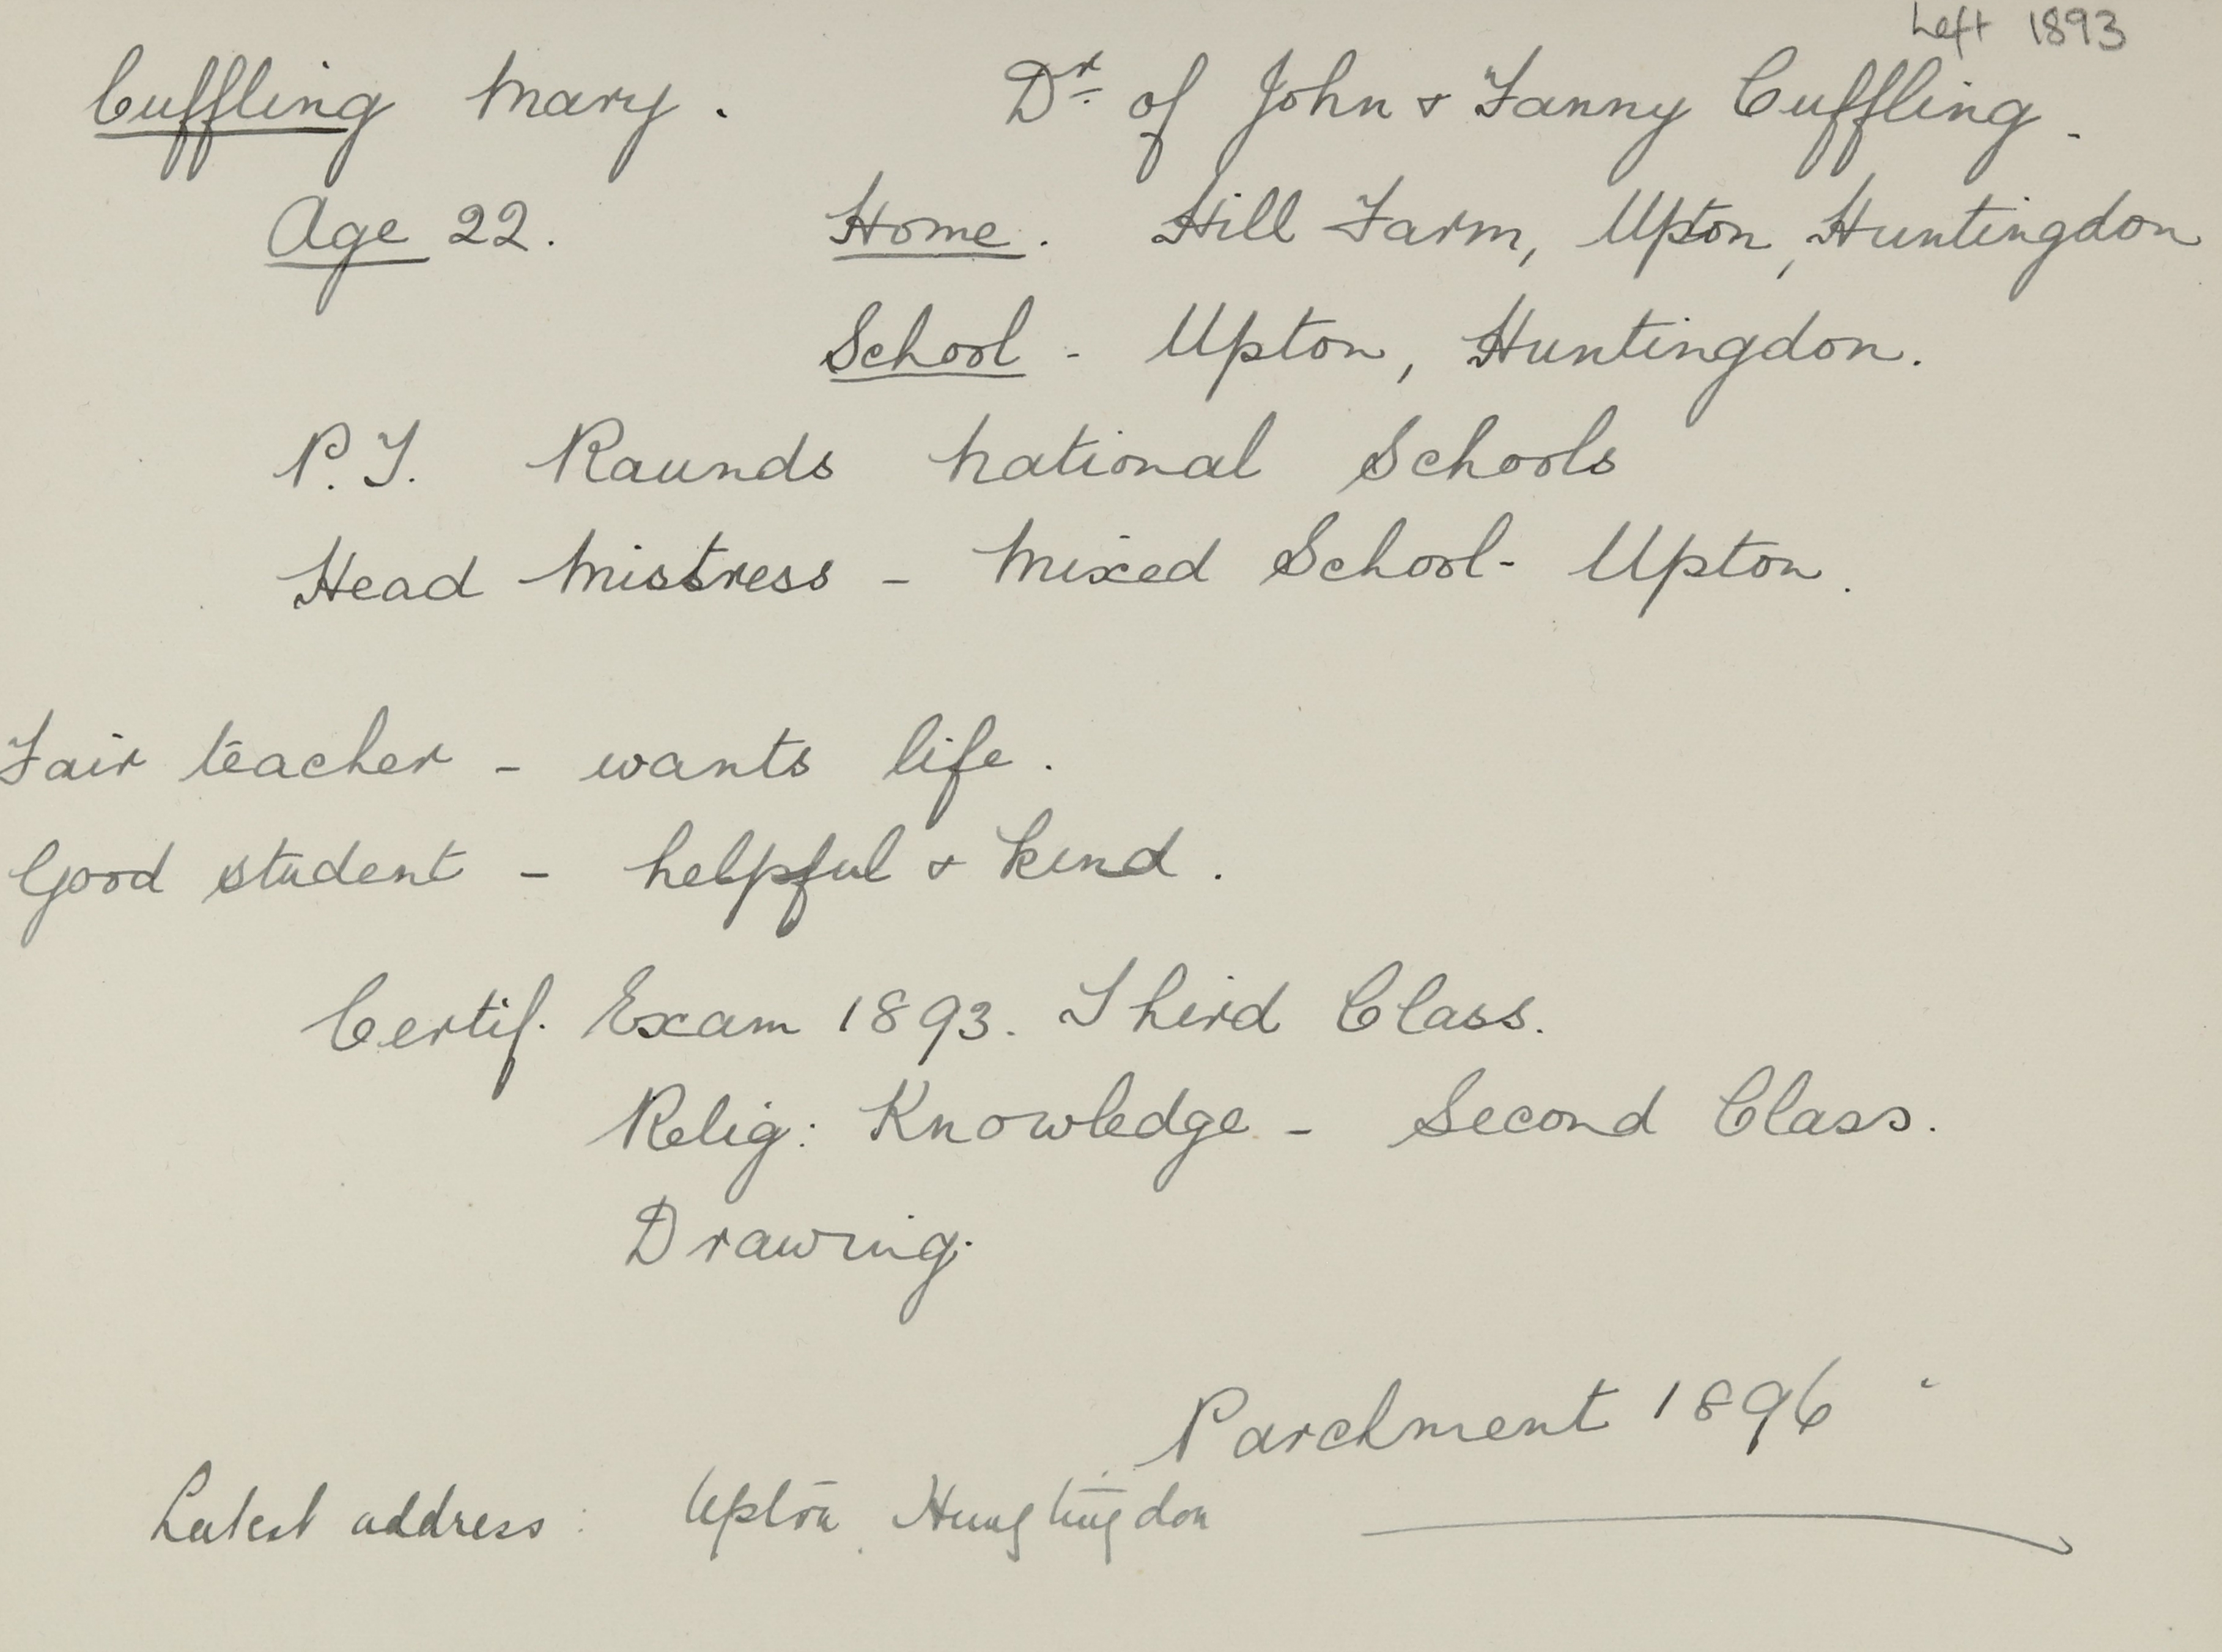 Left 1893
Cuffling Mary. Dr. of John & Fanny Cuffling.
Age 22. Home. Hill Farm, Upton, Huntingdon
School - Upton, Huntingdon.
P.T. Raunds National Schools
Head Mistress - Mixed School - Upton.
Fair teacher - wants life.
Good student - helpful & kind.
Certif. Exam 1893. Third Class.
Relig: Knowledge - Second Class.
Drawing.
Parchment 1896
Latest address: Upton, Hungtingdon